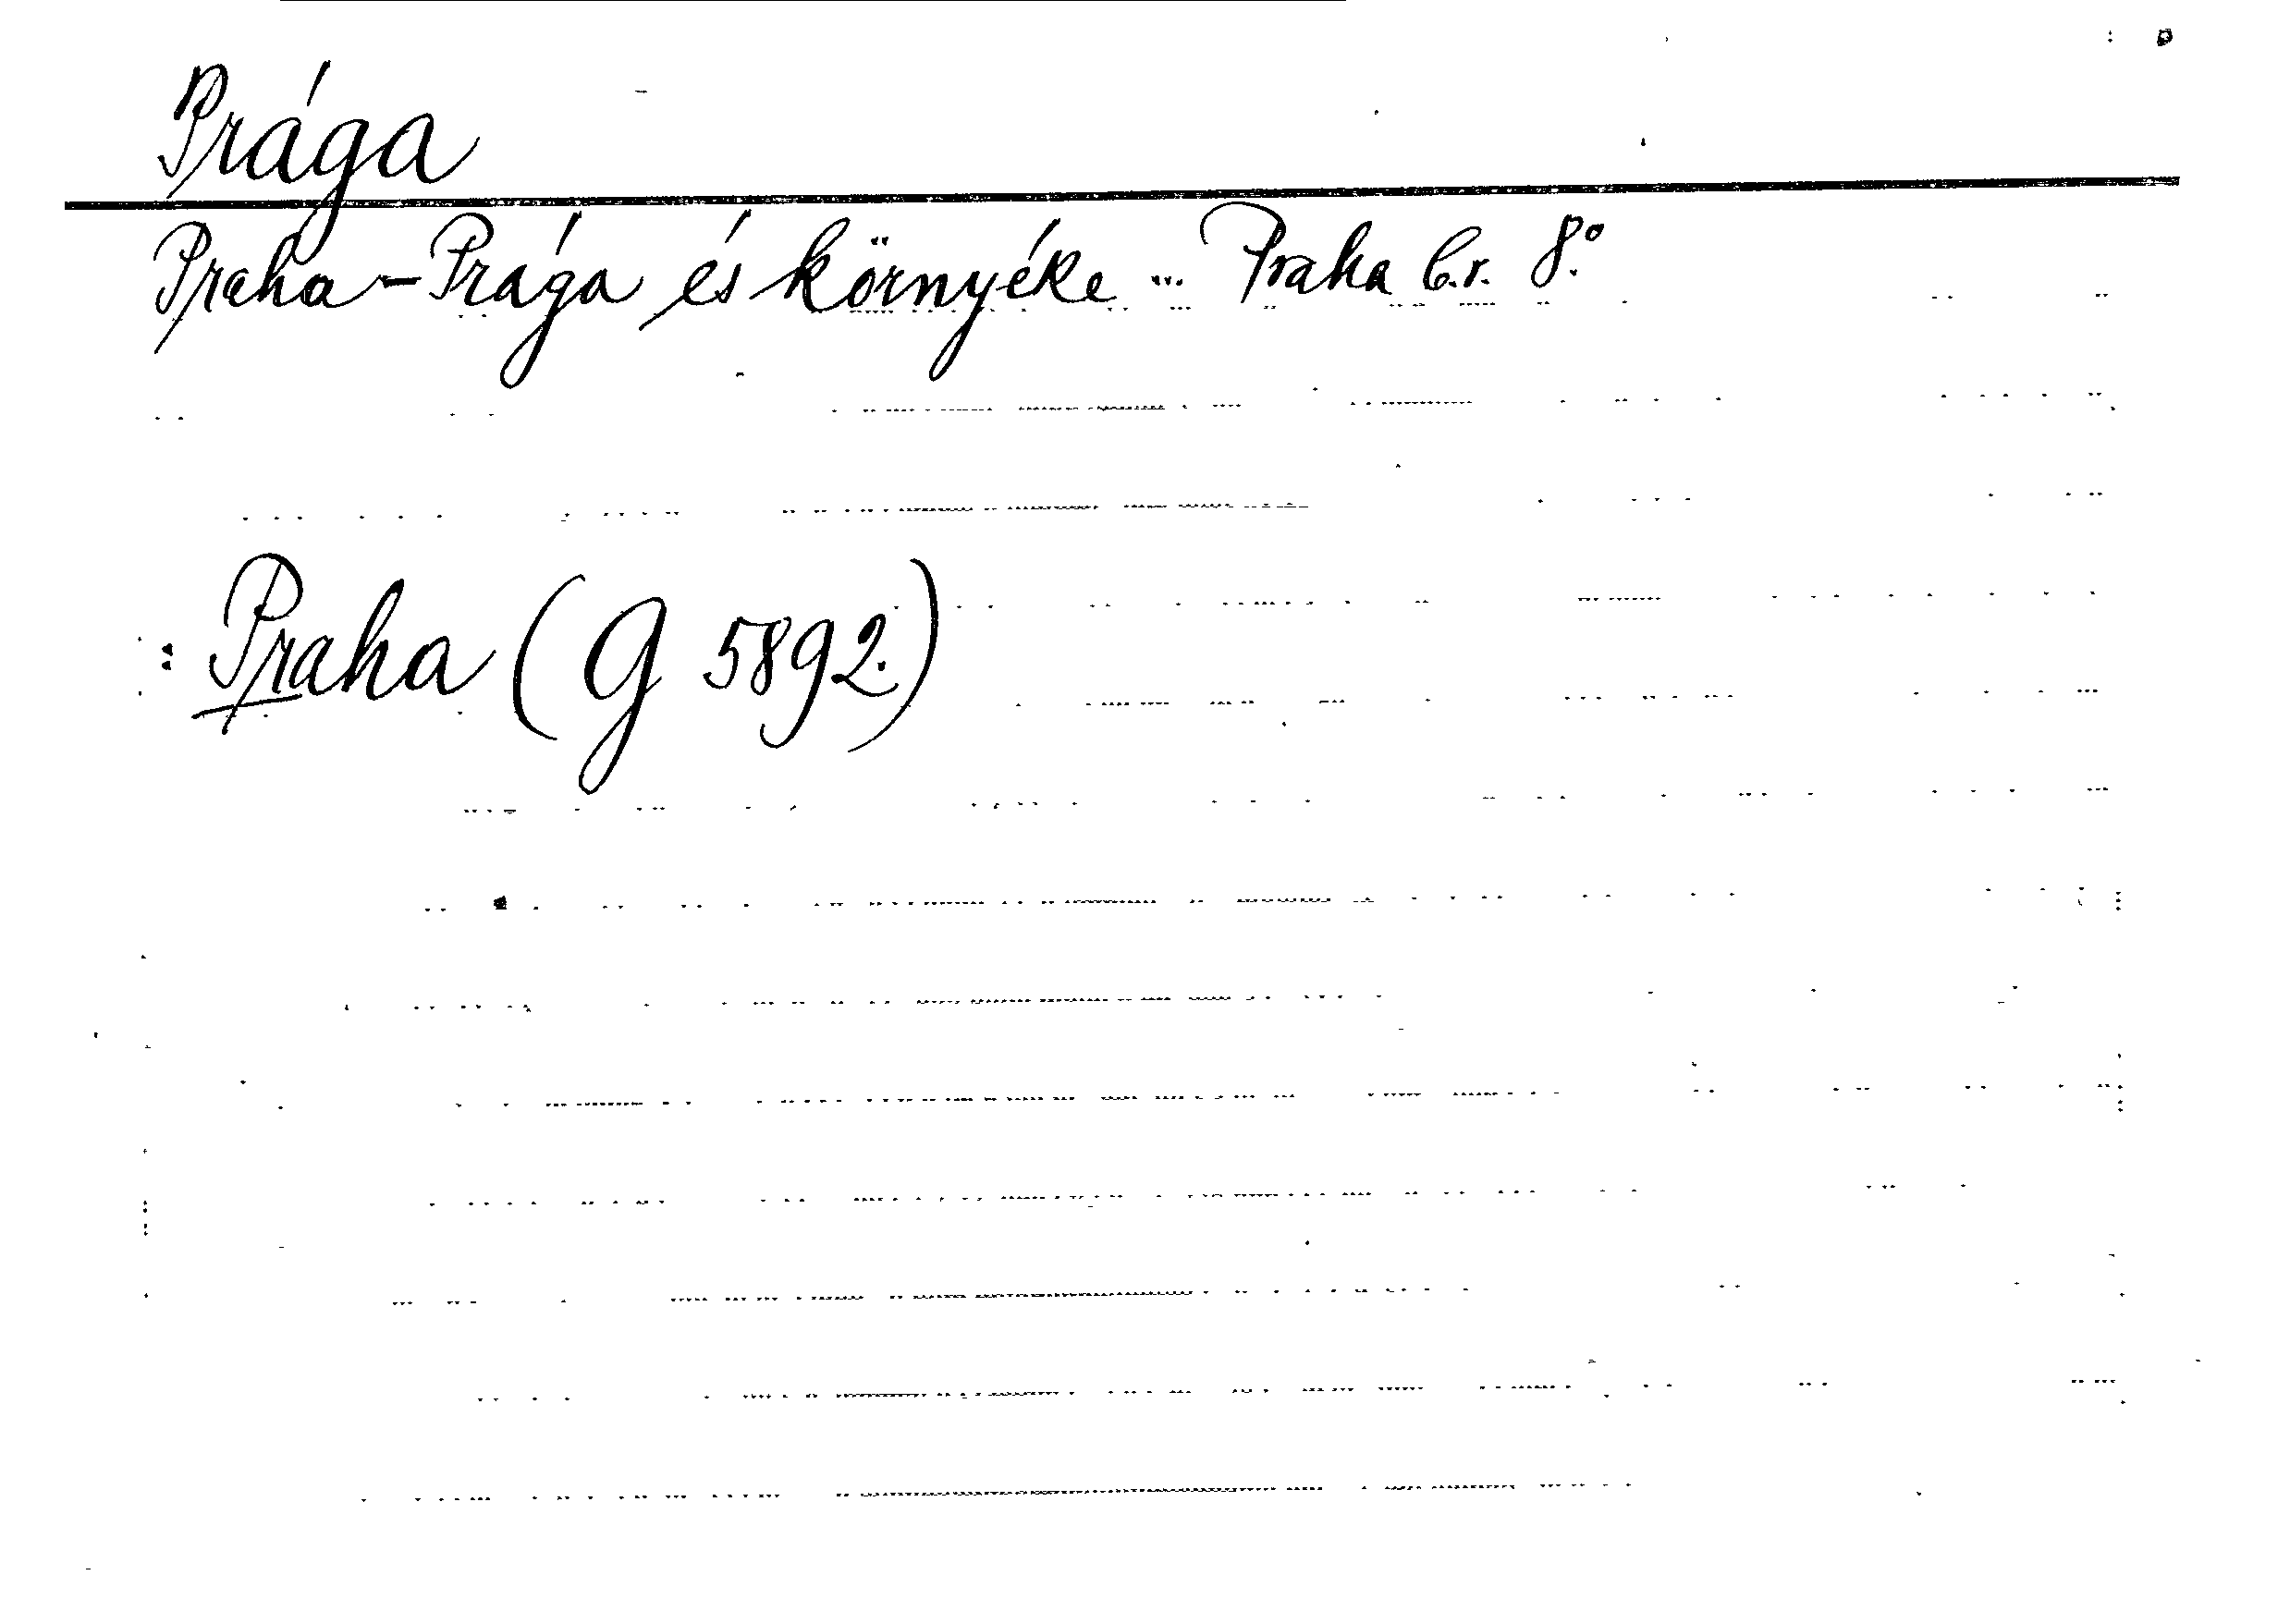 Prága
Praha - Prága és környéke ... Praha é.r. 8.°
: Praha (G 5892.)